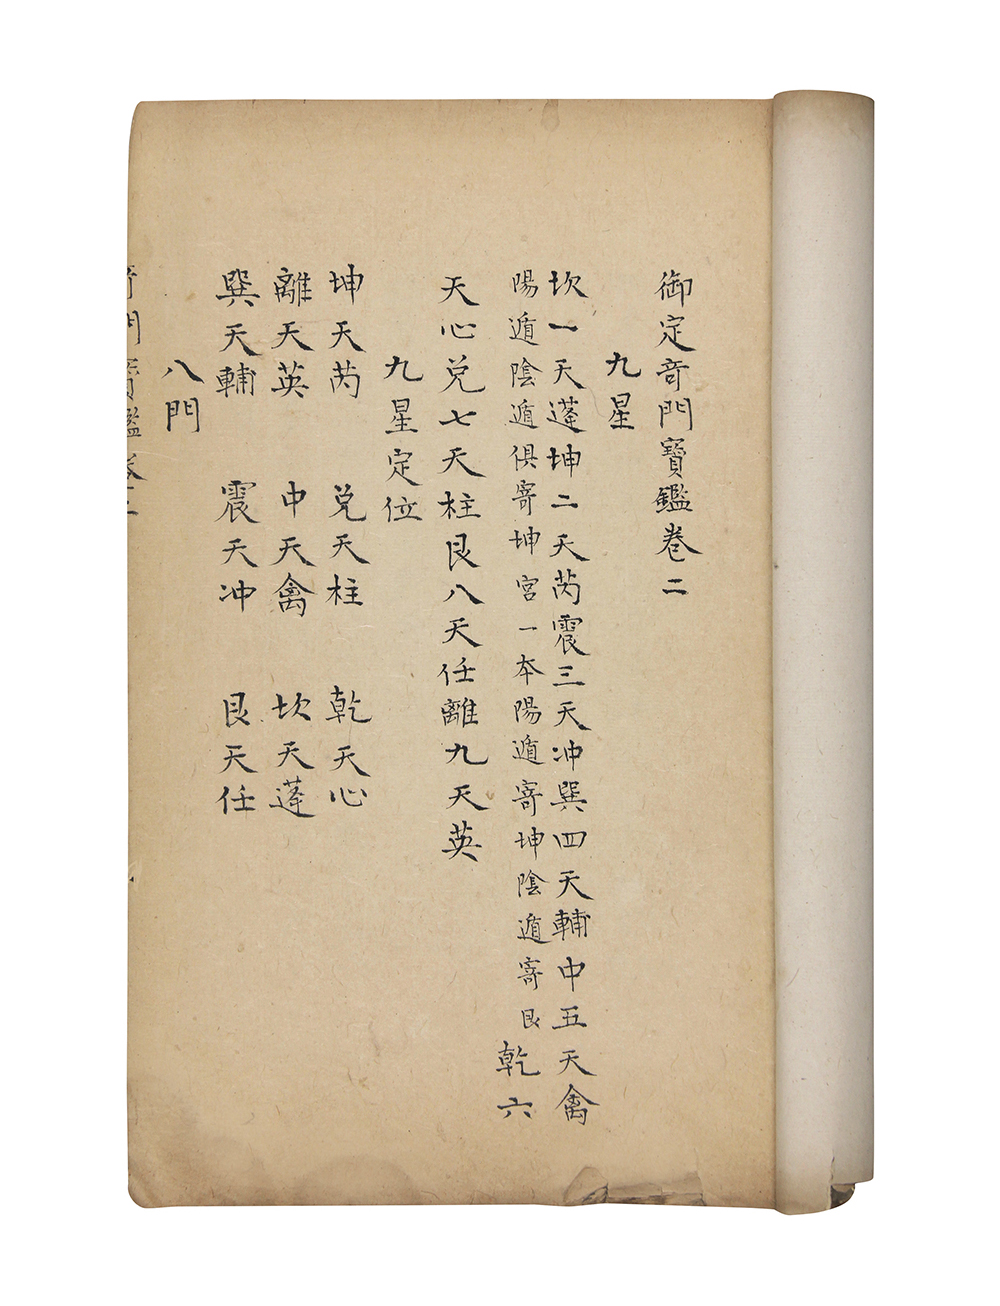 御定奇門寶鑑卷二
九星
坎一天蓬坤二天芮震三天冲巽四天輔中五天禽
陽遁陰遁俱寄坤宮一本陽遁寄坤陰遁寄艮乾六
天心兌七天柱艮八天任離九天英
九星定位
坤天芮 兌天柱 乾天心
離天英 中天禽 坎天蓬
巽天輔 震天冲 艮天任
八門
奇門寶鑑卷二